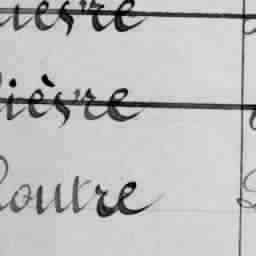 ièvre
lièvre
Loutre